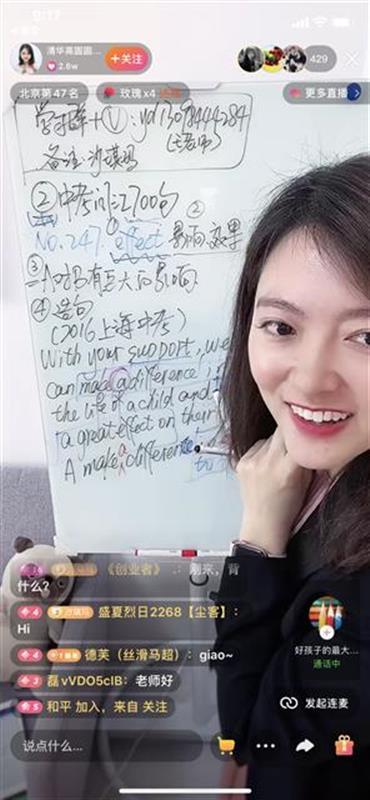 9:17
清华高固圆圆...
2.6w
+关注
429
北京第47名
玫瑰 x4
更多直播
学习群+V: yd13098444284
备注:沙琪玛
② 中考词:2700句
②
No.247. effect 影响,效果
③
一对B有巨大的影响
④ 造句
(2016上海中考)
With your support, we
can make a difference in
the life of a child and
a great effect on their
A make a difference to
《创业者》 .: 刚来,背
什么?
4 盛夏烈日2268【尘客】:
Hi
4 德芙(丝滑马超): giao~
3 磊vVDO5cIB: 老师好
5 和平 加入,来自 关注
好孩子的最大...
通话中
发起连麦
说点什么...